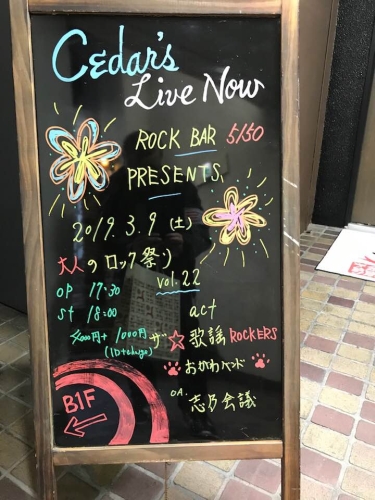 Cedar's
Live Now
ROCK BAR 5150
PRESENTS,
2019.3.9 (土)
大人のロック祭り
vol.22
OP 17:30
St 18:00
act
1000円
(1D+charge)
ザ☆歌謡ROCKERS
おがわバンド
O.A. 志乃会議
B1F